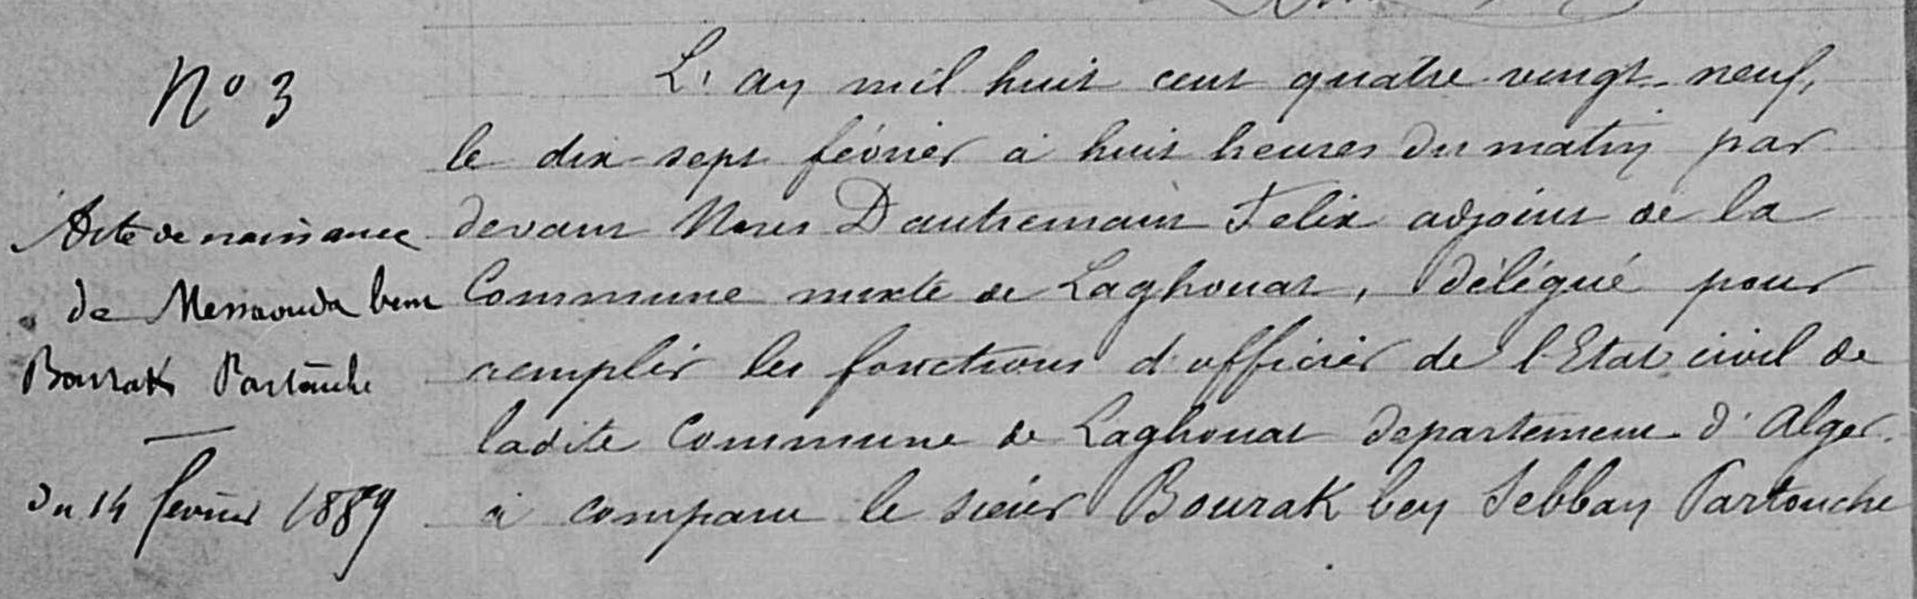 N° 3
Acte de naissance
de Messaouda bent
Bourak Partouche
du 14 février 1889
L'an mil huit cent quatre vingt-neuf,
le dix sept février à huit heures du matin par
devant Nous Dautremain Felix adjoint de la
Commune mixte de Laghouat, délégué pour
remplir les fonctions d'officier de l'Etat civil de
ladite Commune de Laghouat departement d'Alger.
a comparu le sieur Bourak ben Sebban Partouche